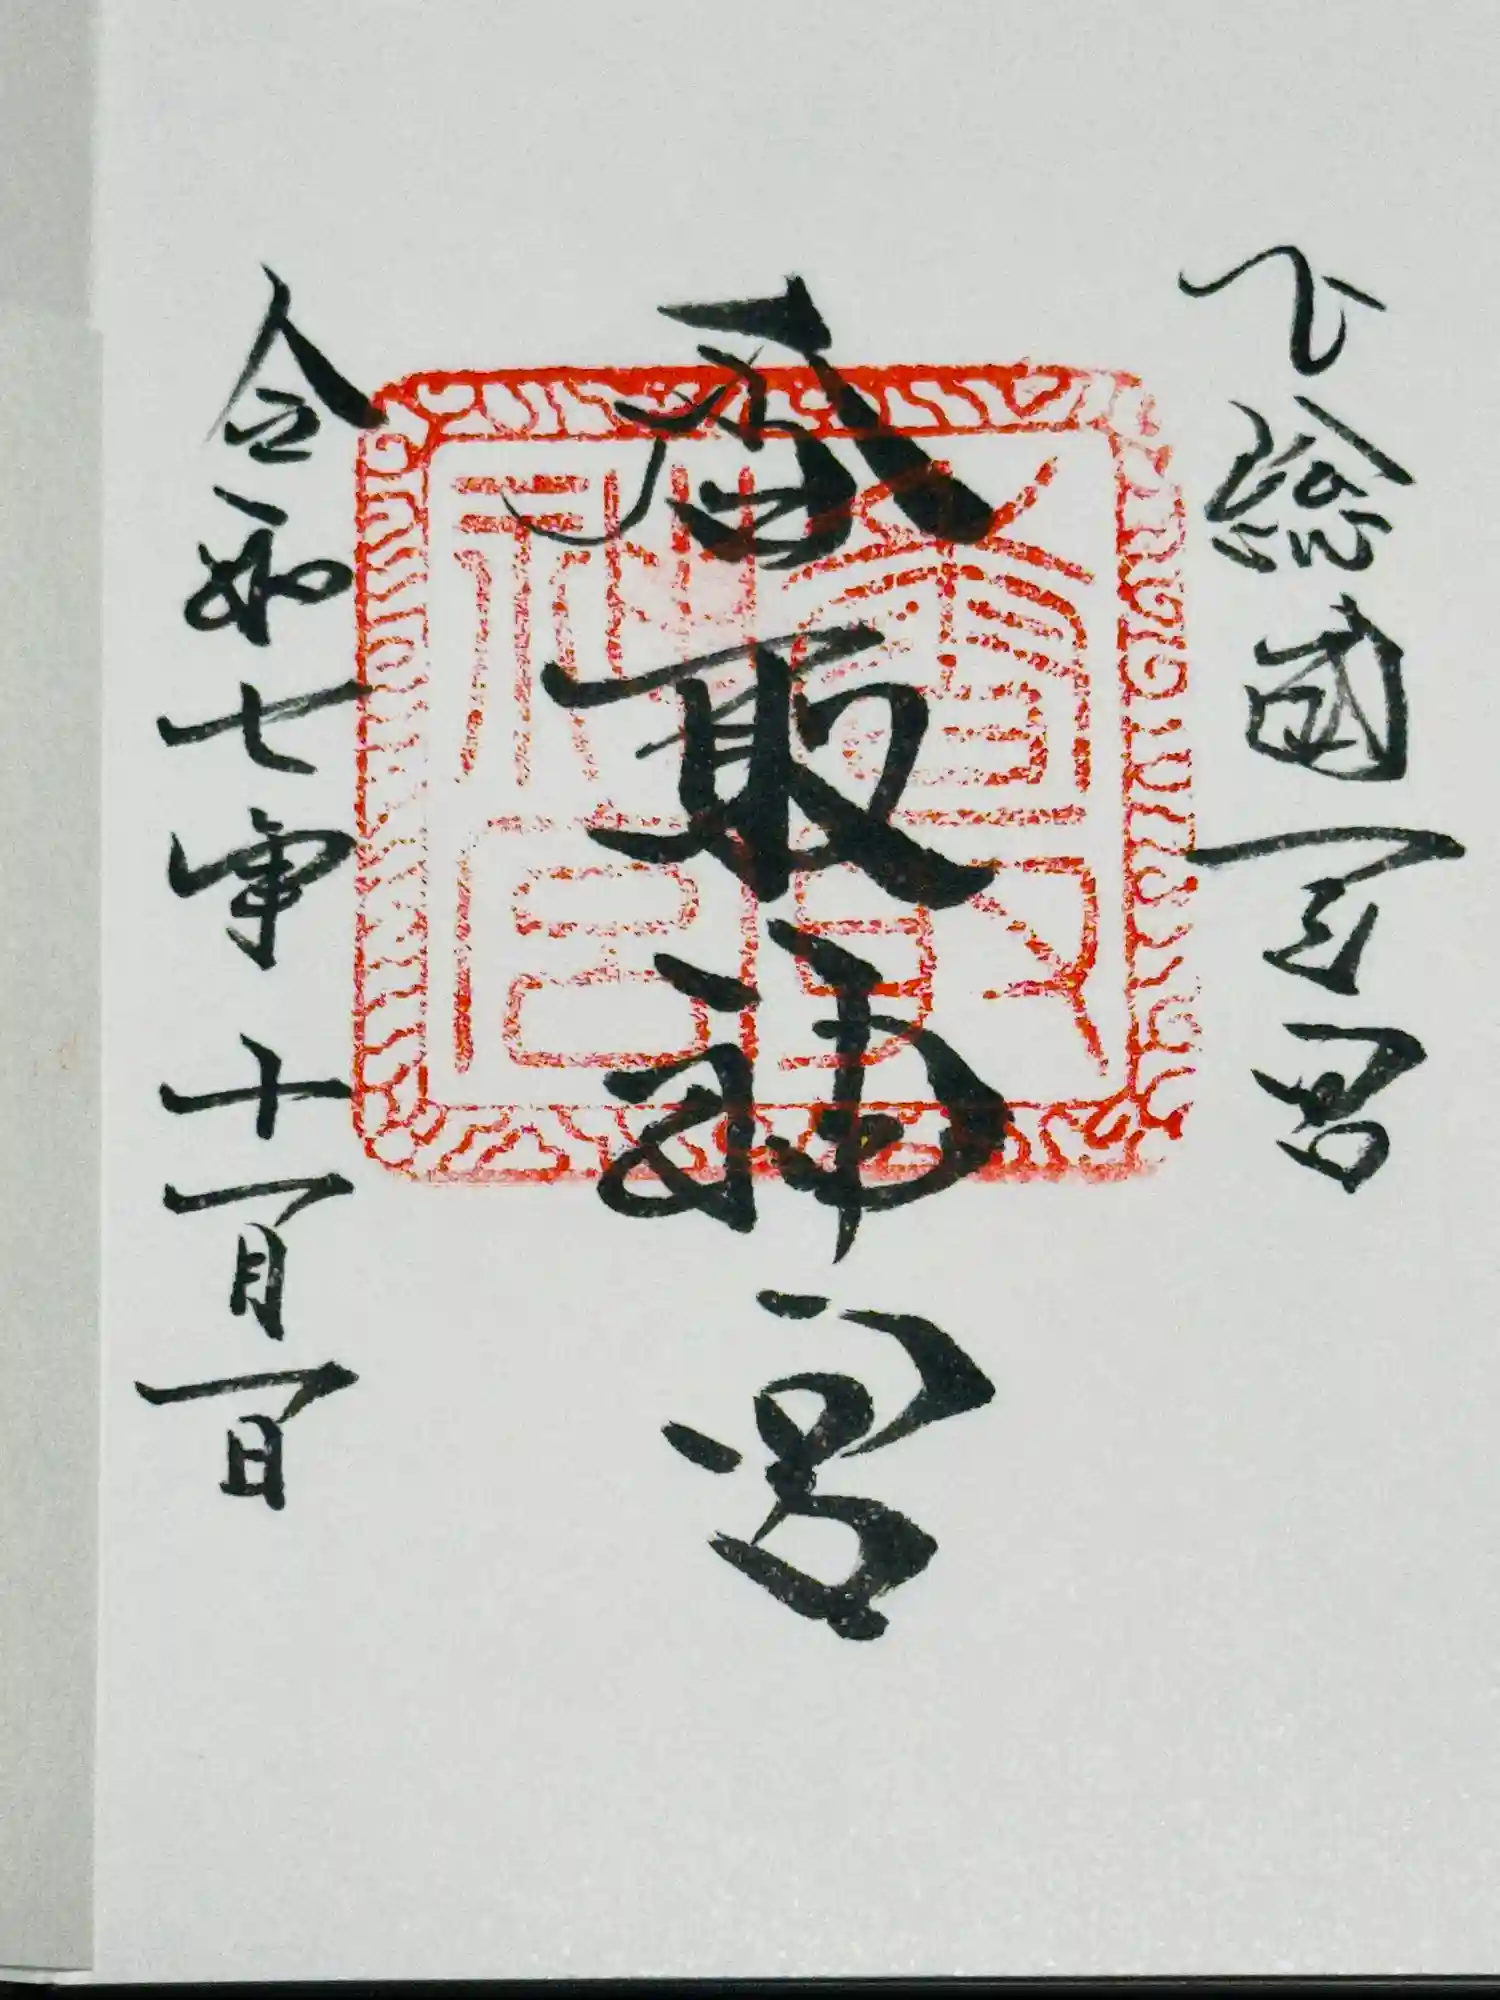 下總國一之宮
香取神宮
令和七年十一月一日
香取
神宮